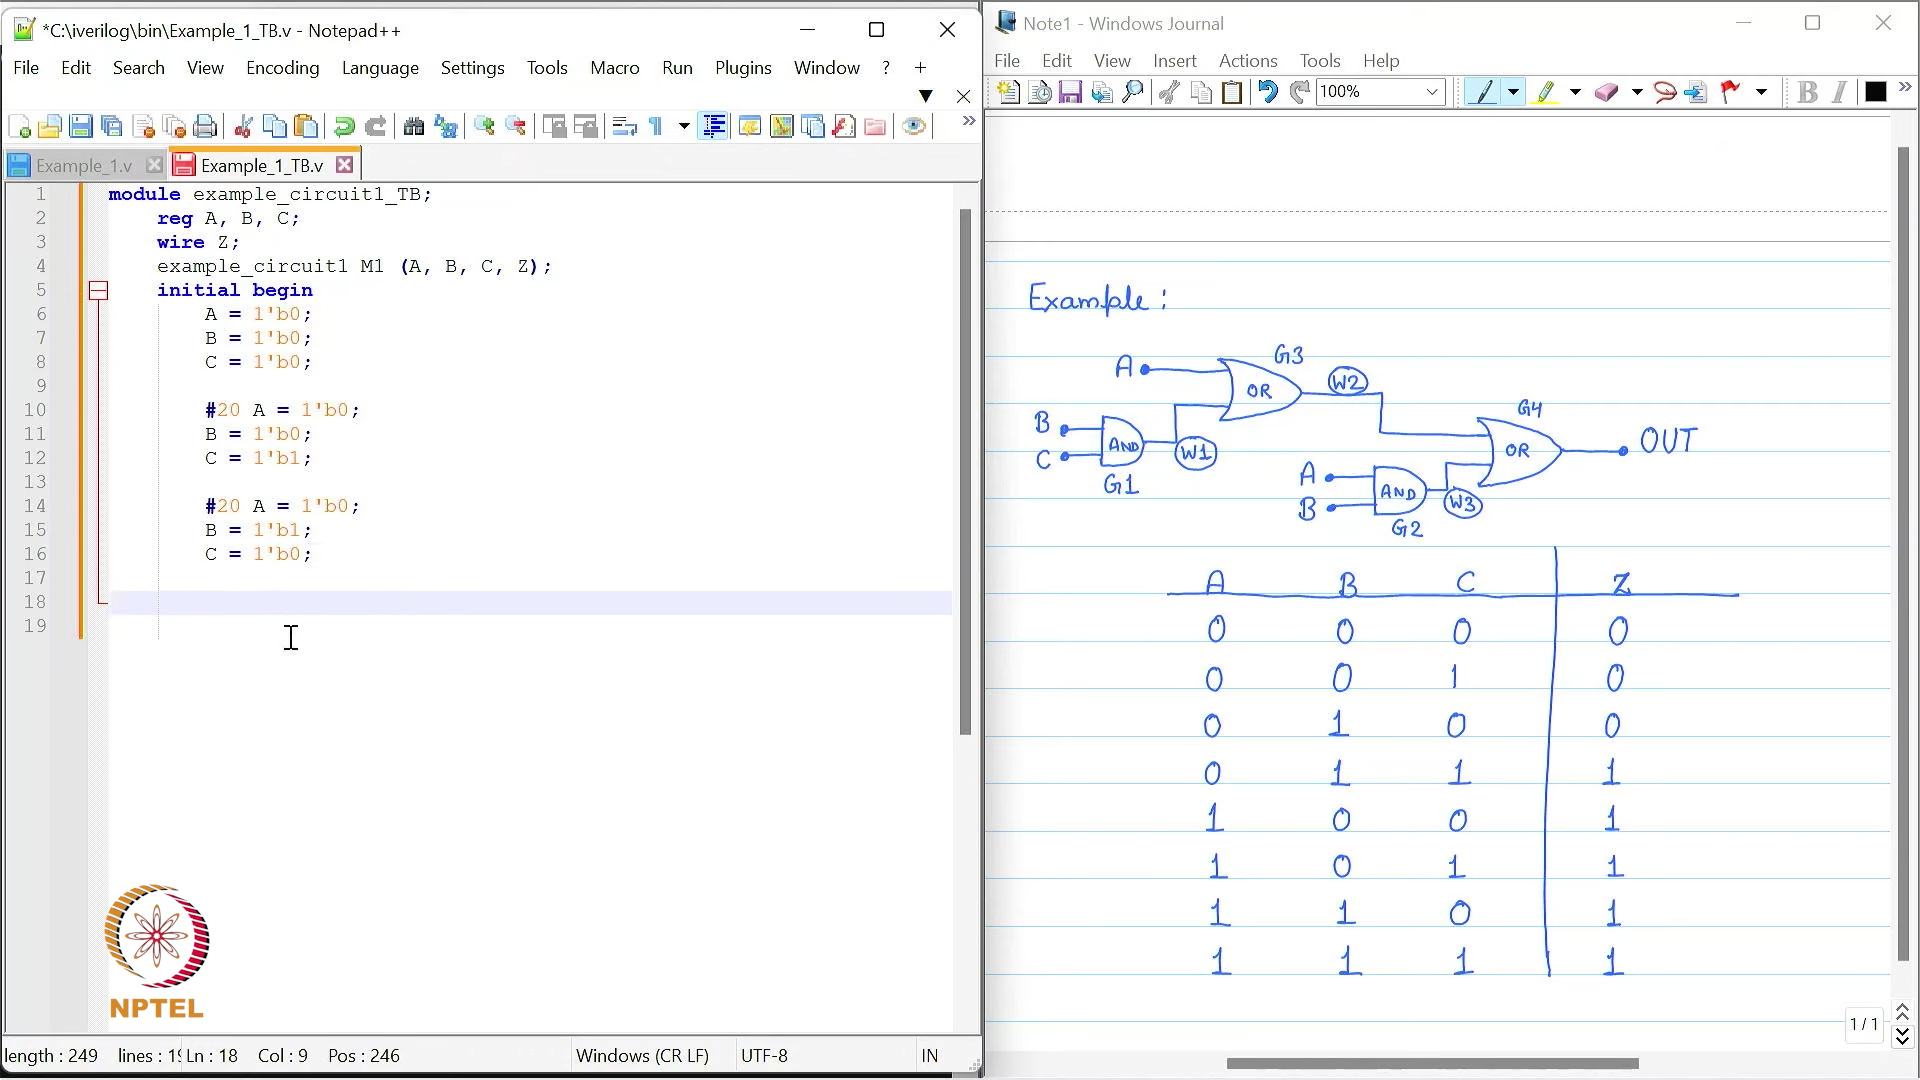 *C:\iverilog\bin\Example_1_TB.v - Notepad++
File Edit Search View Encoding Language Settings Tools Macro Run Plugins Window ? +
Example_1.v Example_1_TB.v
1 module example_circuit1_TB;
2 reg A, B, C;
3 wire Z;
4 example_circuit1 M1 (A, B, C, Z);
5 initial begin
6 A = 1'b0;
7 B = 1'b0;
8 C = 1'b0;
9
10 #20 A = 1'b0;
11 B = 1'b0;
12 C = 1'b1;
13
14 #20 A = 1'b0;
15 B = 1'b1;
16 C = 1'b0;
17
18
19
NPTEL
length : 249 lines : 19 Ln : 18 Col : 9 Pos : 246 Windows (CR LF) UTF-8 IN
Note1 - Windows Journal
File Edit View Insert Actions Tools Help
100% B I
Example :
A G3 OR W2
B C AND G1 W1
G4 OR OUT
A B AND G2 W3
A B C Z
0 0 0 0
0 0 1 0
0 1 0 0
0 1 1 1
1 0 0 1
1 0 1 1
1 1 0 1
1 1 1 1
1 / 1